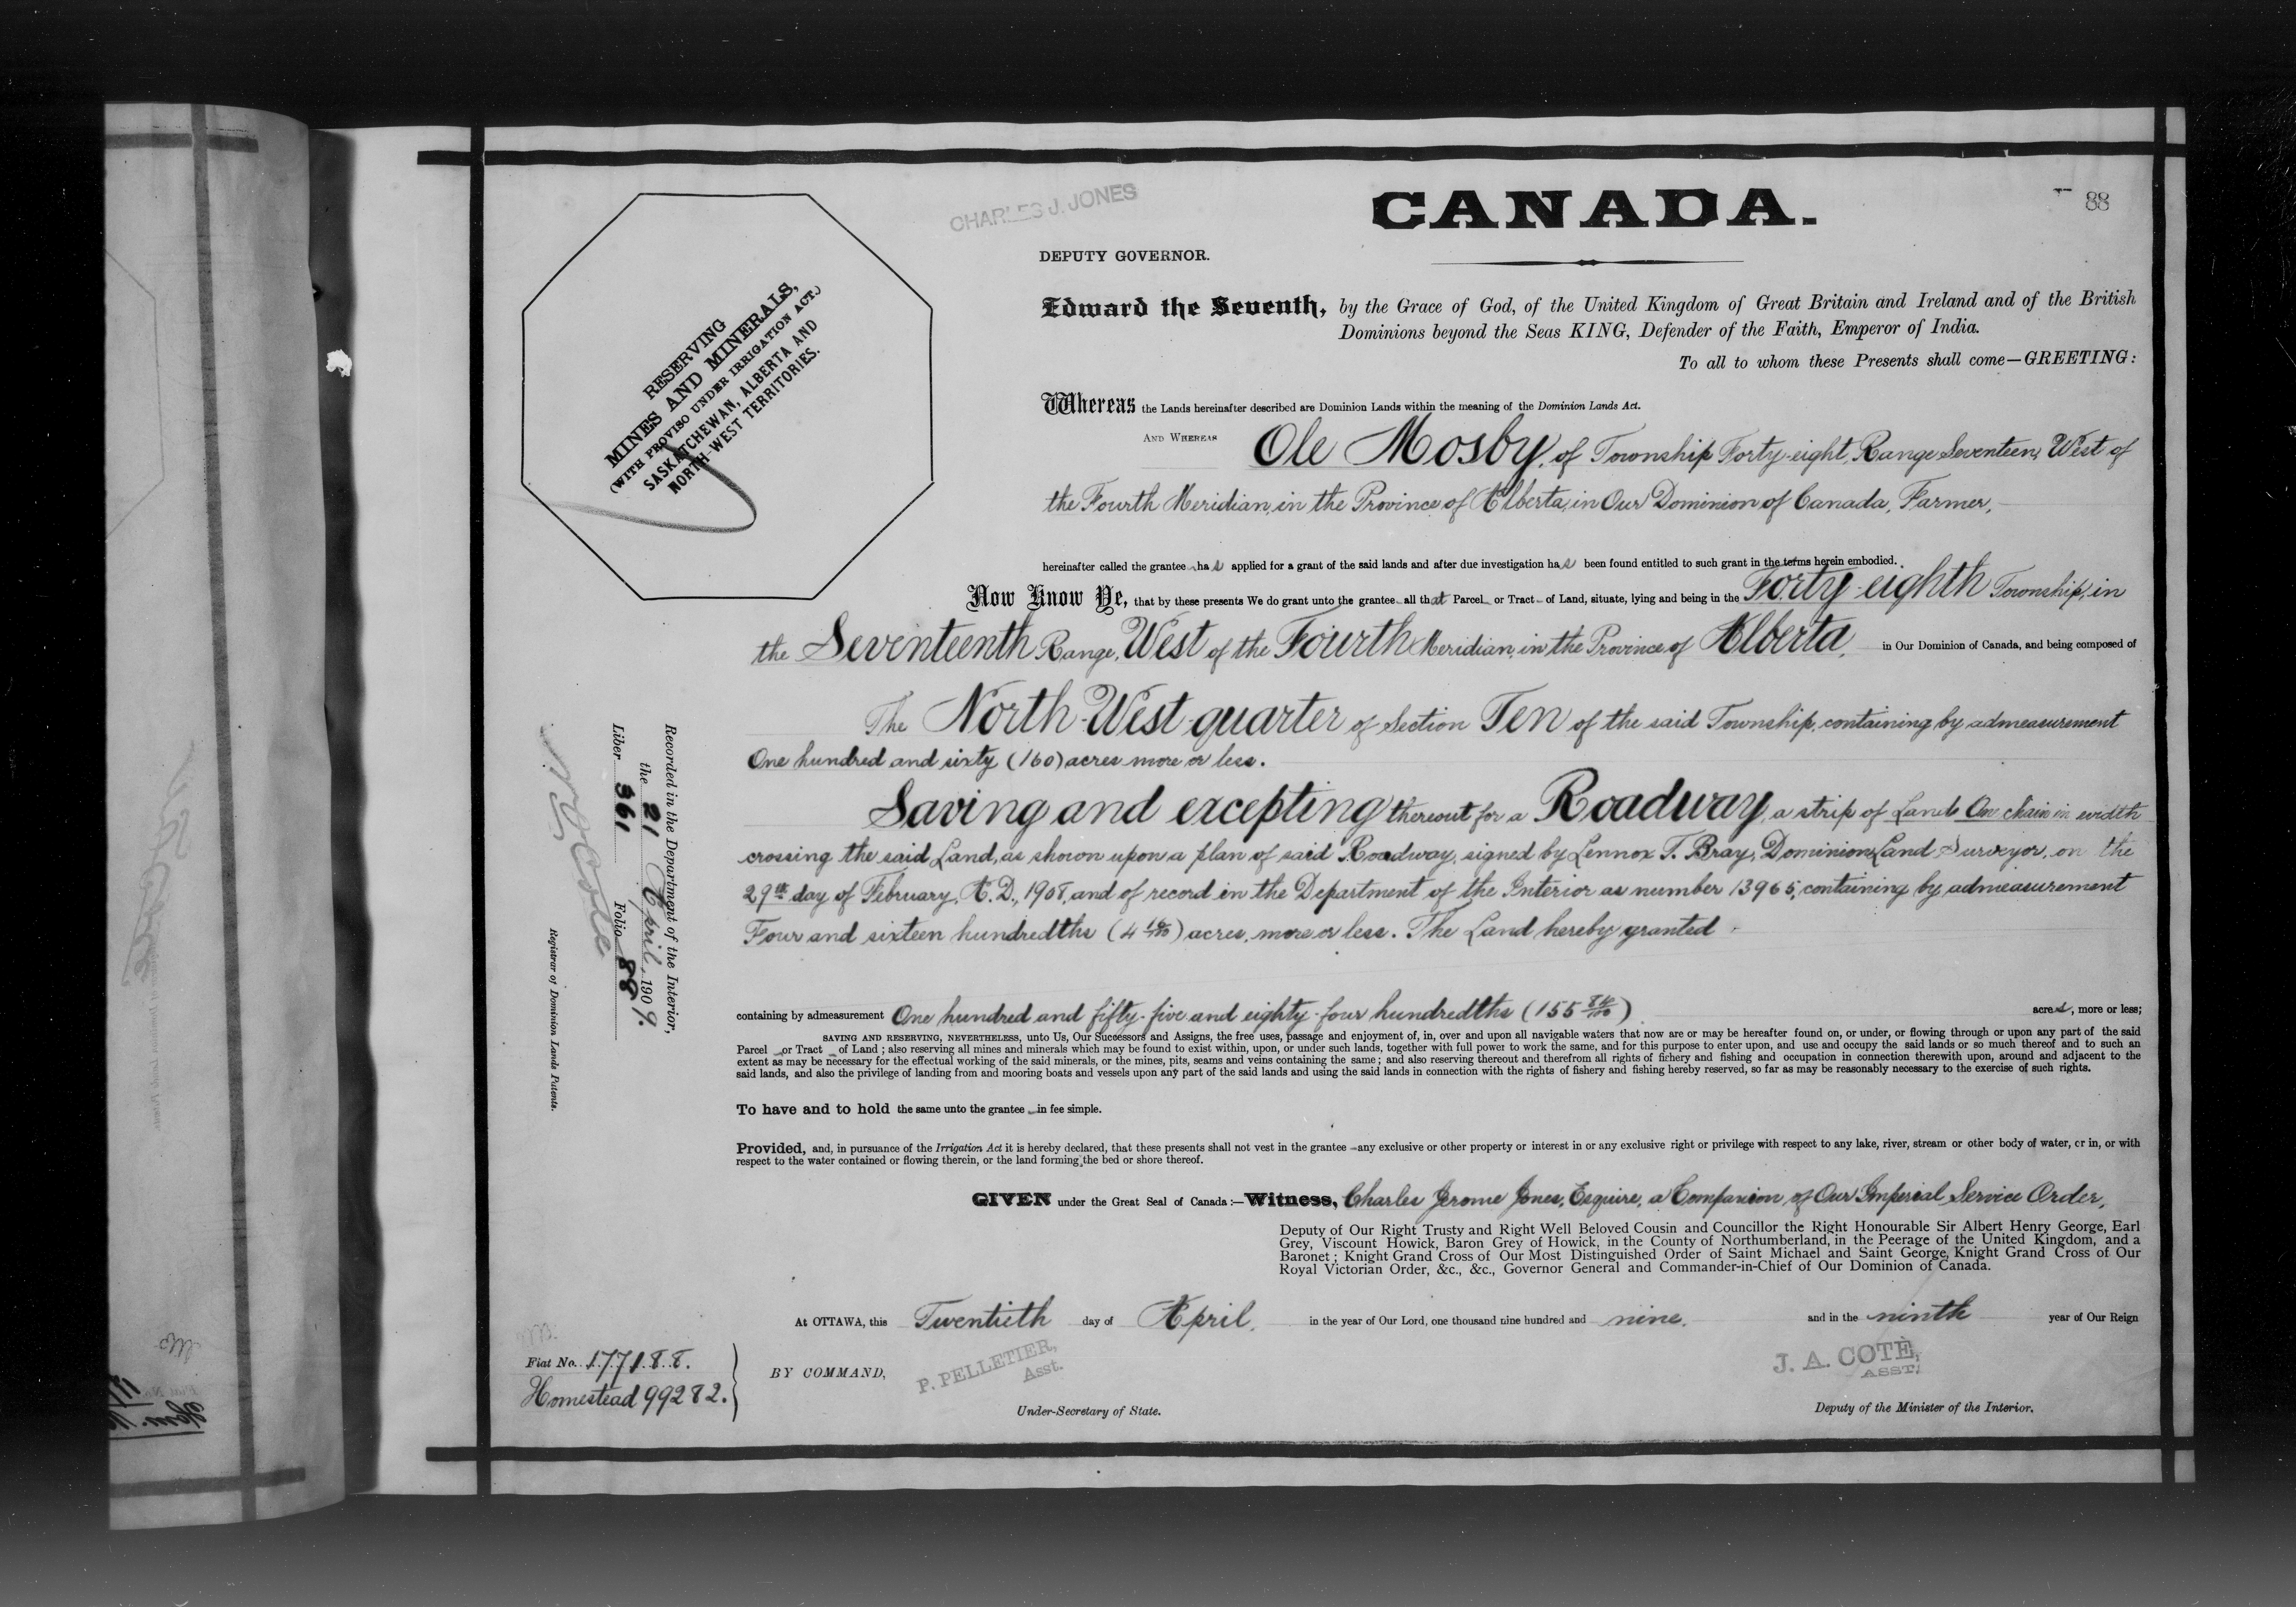 CHARLES J. JONES
CANADA.
88
DEPUTY GOVERNOR.
RESERVING
MINES AND MINERALS,
(WITH PROVISO UNDER IRRIGATION ACT.)
SASKATCHEWAN, ALBERTA AND
NORTH-WEST TERRITORIES.
Edward the Seventh, by the Grace of God, of the United Kingdom of Great Britain and Ireland and of the British
Dominions beyond the Seas KING, Defender of the Faith, Emperor of India.
To all to whom these Presents shall come—GREETING:
Whereas the Lands hereinafter described are Dominion Lands within the meaning of the Dominion Lands Act.
AND WHEREAS Ole Mosby, of Township Forty-eight, Range Seventeen, West of
the Fourth Meridian, in the Province of Alberta, in Our Dominion of Canada, Farmer,
hereinafter called the grantee has applied for a grant of the said lands and after due investigation has been found entitled to such grant in the terms herein embodied.
Now Know Ye, that by these presents We do grant unto the grantee all that Parcel or Tract of Land, situate, lying and being in the Forty-eighth Township, in
the Seventeenth Range, West of the Fourth Meridian, in the Province of Alberta, in Our Dominion of Canada, and being composed of
The North-West-quarter of Section Ten of the said Township, containing by admeasurement
One hundred and sixty (160) acres more or less.
Saving and excepting thereout for a Roadway, a strip of Land One chain in width
crossing the said Land, as shown upon a plan of said Roadway, signed by Lennox T. Bray, Dominion Land Surveyor, on the
29th day of February, A.D., 1908, and of record in the Department of the Interior as number 13965, containing by admeasurement
Four and sixteen hundredths (4 16/100) acres, more or less. The Land hereby granted
containing by admeasurement One hundred and fifty-five and eighty-four hundredths (155 84/100) acres, more or less;
SAVING AND RESERVING, NEVERTHELESS, unto Us, Our Successors and Assigns, the free uses, passage and enjoyment of, in, over and upon all navigable waters that now are or may be hereafter found on, or under, or flowing through or upon any part of the said
Parcel or Tract of Land; also reserving all mines and minerals which may be found to exist within, upon, or under such lands, together with full power to work the same, and for this purpose to enter upon, and use and occupy the said lands or so much thereof and to such an
extent as may be necessary for the effectual working of the said minerals, or the mines, pits, seams and veins containing the same; and also reserving thereout and therefrom all rights of fichery and fishing and occupation in connection therewith upon, around and adjacent to the
said lands, and also the privilege of landing from and mooring boats and vessels upon any part of the said lands and using the said lands in connection with the rights of fishery and fishing hereby reserved, so far as may be reasonably necessary to the exercise of such rights.
To have and to hold the same unto the grantee in fee simple.
Provided, and, in pursuance of the Irrigation Act it is hereby declared, that these presents shall not vest in the grantee any exclusive or other property or interest in or any exclusive right or privilege with respect to any lake, river, stream or other body of water, or in, or with
respect to the water contained or flowing therein, or the land forming the bed or shore thereof.
GIVEN under the Great Seal of Canada:—Witness, Charles Jerome Jones, Esquire, a Companion of Our Imperial Service Order,
Deputy of Our Right Trusty and Right Well Beloved Cousin and Councillor the Right Honourable Sir Albert Henry George, Earl
Grey, Viscount Howick, Baron Grey of Howick, in the County of Northumberland, in the Peerage of the United Kingdom, and a
Baronet; Knight Grand Cross of Our Most Distinguished Order of Saint Michael and Saint George, Knight Grand Cross of Our
Royal Victorian Order, &c., &c., Governor General and Commander-in-Chief of Our Dominion of Canada.
At OTTAWA, this Twentieth day of April, in the year of Our Lord, one thousand nine hundred and nine. and in the ninth year of Our Reign
BY COMMAND,
P. PELLETIER,
Asst.
Under-Secretary of State.
J. A. COTÉ,
ASST.
Deputy of the Minister of the Interior.
Fiat No. 177188.
Homestead 99282.
Recorded in the Department of the Interior,
the 21 April, 1909.
Liber 361 Folio 88
Registrar of Dominion Lands Patents.